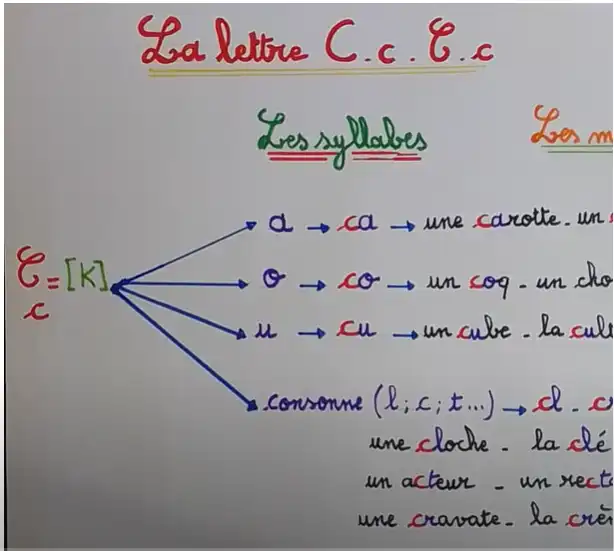 La lettre C.c.C.c
Les syllabes
a → ca → une carotte - un
C = [K]
c
o → co → un coq - un
u → cu → un cube - la
consonne (l; c; t...) → cl -
une cloche - la clé
un acteur - un
une cravate - la